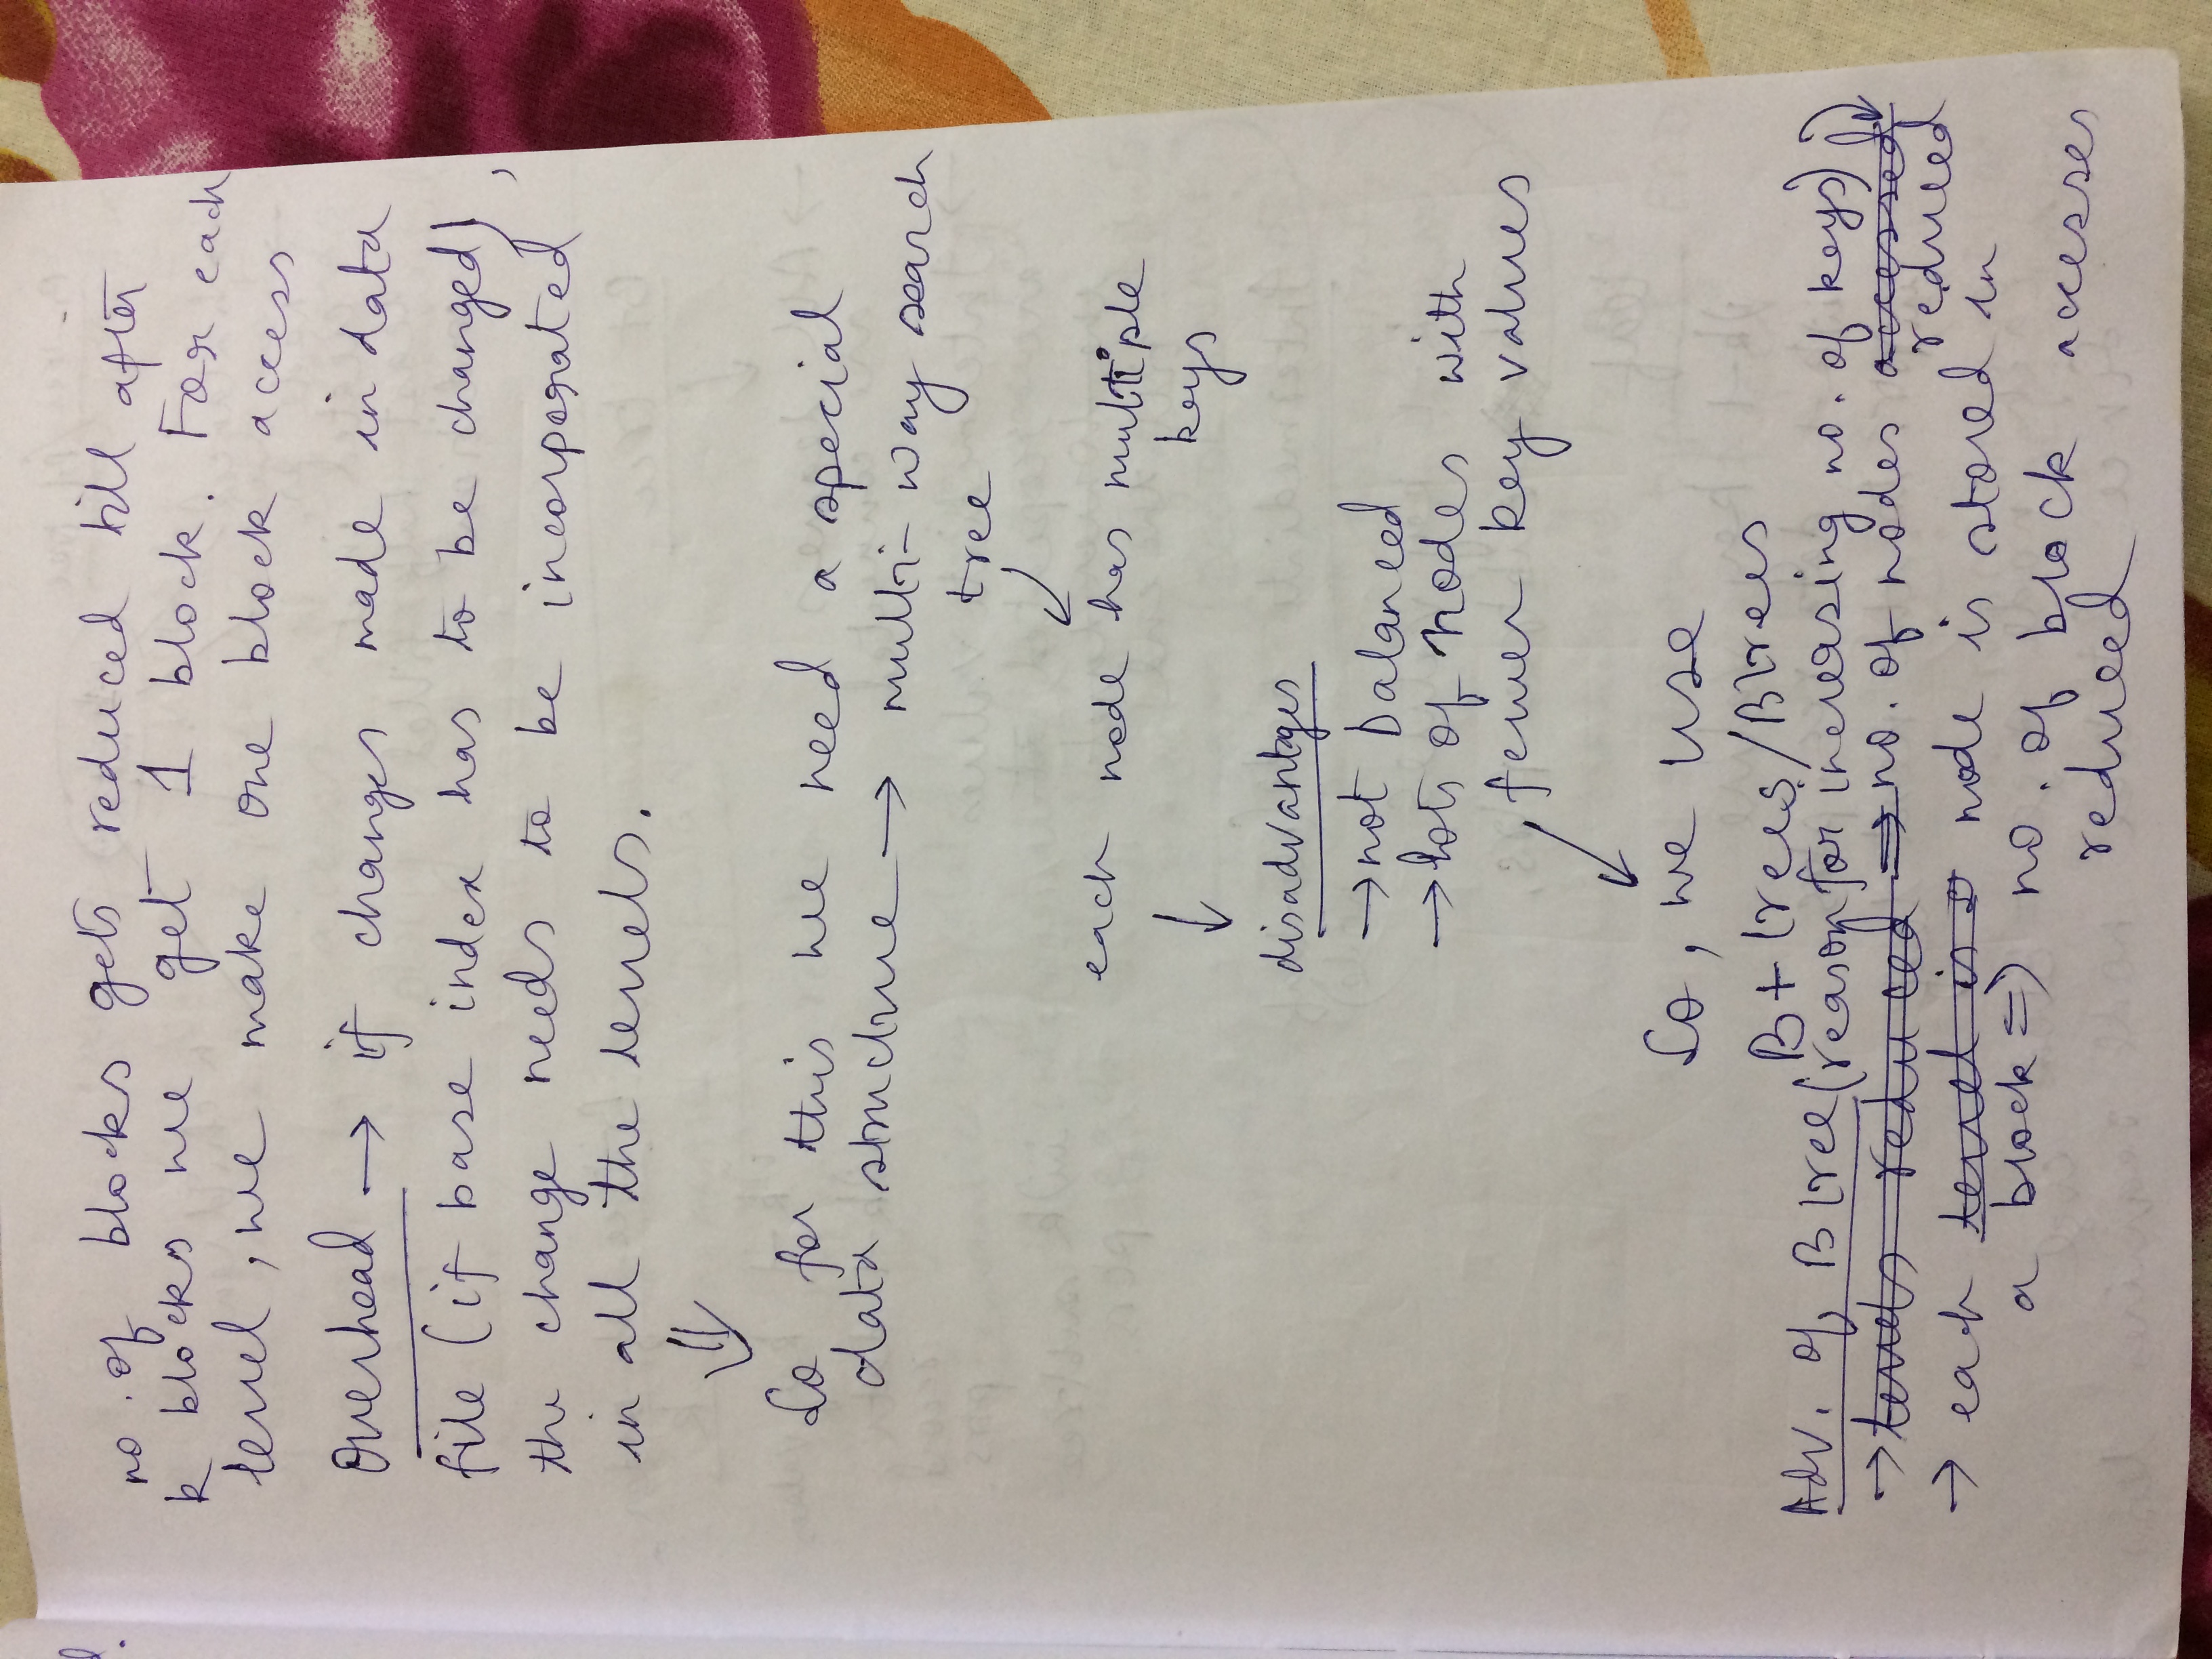 no. of blocks gets reduced till after
k blocks we get 1 block. For each
level, we make one block access
Overhead → if changes made in data
file (if base index has to be changed),
the change needs to be incorporated
in all the levels.
⇓
So for this we need a special
data structure → multi-way search
tree
each node has multiple
keys
↓
disadvantges
→ not balanced
→ lots of nodes with
fewer key values
So, we use
B+ trees/B trees
Adv. of B tree (reason for increasing no. of keys)
→ levels reduced ⇒ no. of nodes accessed
reduced
→ each level is node is stored in
a block ⇒ no. of block accesses
reduced